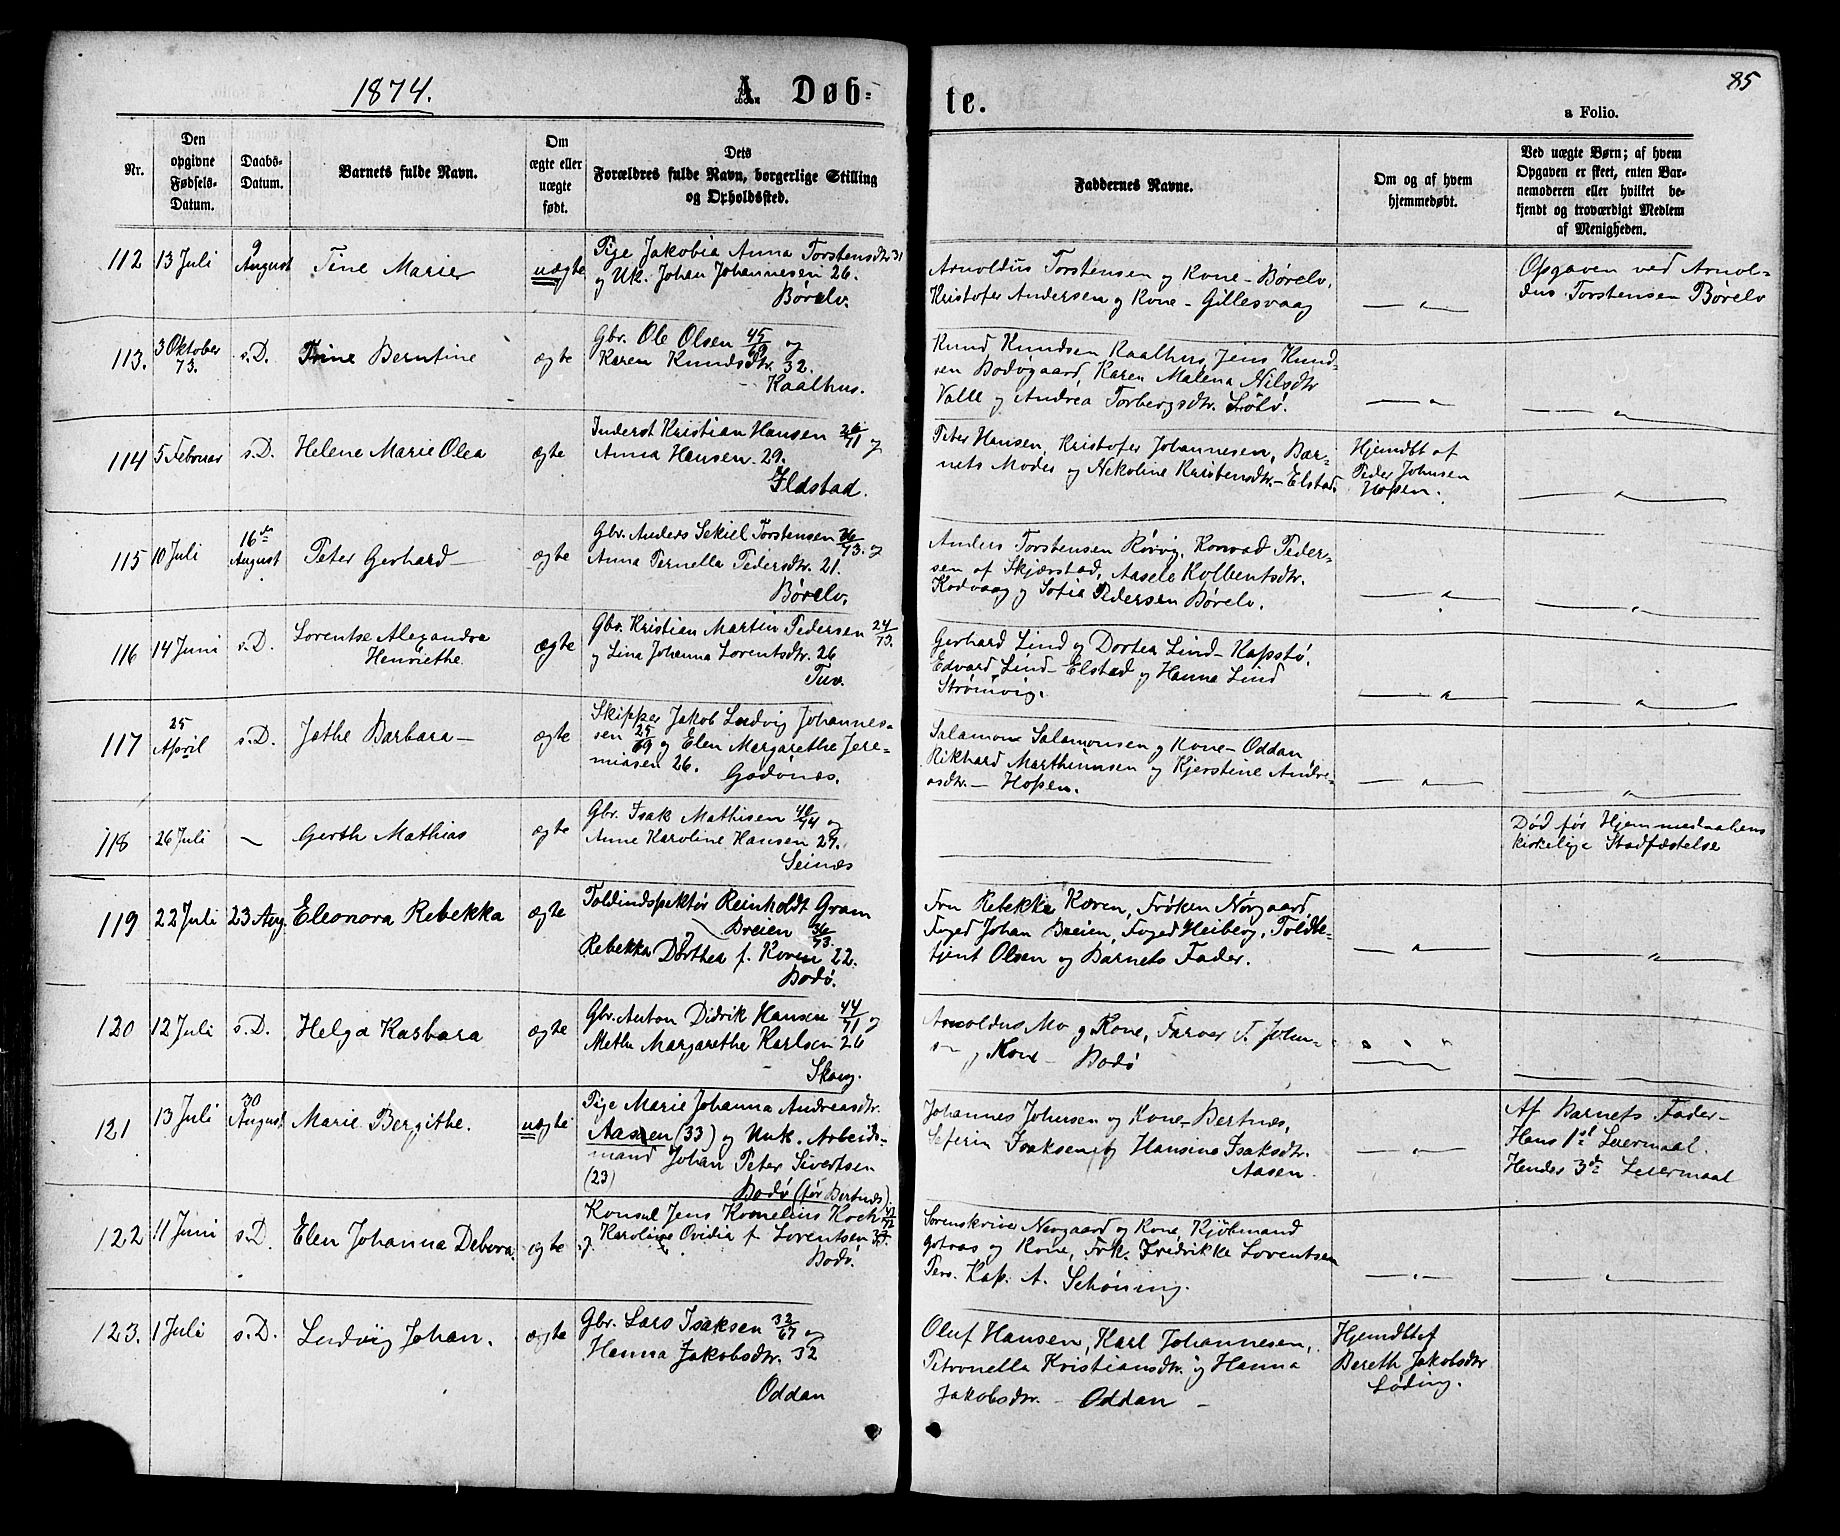 1874.
A. Døb-
te.
85
a Folio.
Nr.
Den
opgivne
Fødsels-
Datum.
Daabs-
Datum.
Barnets fulde Navn.
Om
ægte eller
uægte
født.
Dets
Forældres fulde Navn, borgerlige Stilling
og Opholdssted.
Faddernes Navne.
Om og af hvem
hjemmedøbt.
Ved uægte Børn; af hvem
Opgaven er skeet, enten Bar-
nemoderen eller hvilket be-
kjendt og troværdigt Medlem
af Menigheden.
112
13 Juli
9
August
Tine Marie
uægte
Pige Jakobia Anna Torstensdtr 31
og Uk. Johan Johannesen 26.
Børelv.
Arnoldus Torstensen og Kone - Børelv,
Kristofer Andersen og Kone - Gillesvaag
Opgaven ved Arnol-
dus Torstensen Børelv
113.
3 Oktober
73.
s.D.
Trine Berntine
ægte
Gbr. Ole Olsen 45/69 og
Karen Knudsdtr. 32.
Kaalhus.
Knud Knudsen Kaalhus, Jens Knud-
sen Bodøgaard, Karen Malena Nilsdtr
Valle og Andrea Torbergsdtr.
114
5 Februar
s.D.
Helene Marie Olea
ægte
Inderst Kristian Hansen 26/71 og
Anna Hansen 29.
Ildstad.
Peter Hansen, Kristofer Johannesen, Bar-
nets Moder og Nekoline Kristensdtr. - Elstad.
Hjemdbt af
Peder Johnsen
Hopen.
115
10 Juli
16de
August
Peter Gerhard
ægte
Gbr. Anders Sekiel Torstensen 36/73. og
Anna Pernella Pedersdtr. 21.
Børelv.
Anders Torstensen Rørvig, Konrad Peder-
sen af Skjærstad, Aasele Kolbentsdtr.
Kodvaag og Sofia Pedersen Børelv.
116
14 Juni
s.D.
Lorentse Alexandra
Henriethe.
ægte
Gbr. Kristian Martin Pedersen 24/73.
og Lina Johanna Lorentsdtr. 26
Tuv.
Gerhard Lind og Dortea Lind - Kapstø.
Edvard Lind - Elstad og Hanna Lind
Strømvig.
117
25
April
s.D.
Jathe Barbara
ægte
Skipper Jakob Ludvig Johannes-
sen 25/69 og Elen Margarethe Jere-
miasen 26.
Godønæs.
Salamon Salamonsen og Kone - Oddan
Rikhard Marthinusen og Kjerstine Andre-
asdtr. - Hopen.
118
26 Juli
Gerth Mathias
ægte
Gbr. Isak Mathisen 40/74 og
Anne Karoline Hansen 29.
Seinæs
Død før Hjemmedaabens
kirkelige Stadfæstelse
119
22 Juli
23 Aug.
Eleonora Rebekka
ægte
Toldindspektør Reinholdt Gram
Breien 36/73. og
Rebekka Dorthea f. Koren 22.
Bodø.
Fru Rebekka Koren, Frøken Norgaard,
Foged Johan Breien, Foged Heiberg, Toldbe-
tjent Olsen og Barnets Fader.
120
12 Juli
s.D.
Helga Kasbara
ægte
Gbr. Anton Didrik Hansen 44/71 og
Methe Margarethe Karlsen 26
Skaug.
Arnoldus Mo og Kone, Farver T. John-
sen og Kone - Bodø
121
13 Juli
30
August
Marie Bergithe.
uægte
Pige Marie Johanna Andreasdtr.
Aasen (33) og Unk. Arbeids-
mand Johan Peter Sivertsen
(23)
Bodø (før Bertnæs)
Johannes Johnsen og Kone - Bertnæs,
Seferin Isaksen og Hansine Isaksdtr.
Aasen.
Af Barnets Fader -
Hans 1st Leiermaal.
Hendes 3de Leiermaal
122
11 Juni
s.D.
Elen Johanna Debora.
ægte
Konsul Jens Kornelius Koch 42/72
og Karoline Ovidia f. Lorentsen
Bodø.
Sorenskriver Norgaard og Kone, Kjøbmand
Jotaas og Kone, Frk. Fredrikke Lorentsen
Prov. Kap. A. Schöning.
123.
1 Juli
s.D.
Ludvig Johan.
ægte
Gbr. Lars Isaksen 32/67 og
Hanna Jakobsdtr. 32
Oddan
Oluf Hansen, Karl Johannesen,
Petronella Kristiansdtr. og Hanna
Jakobsdtr. - Oddan -
Hjemdbt af
Bereth Jakobsdtr
Løding.